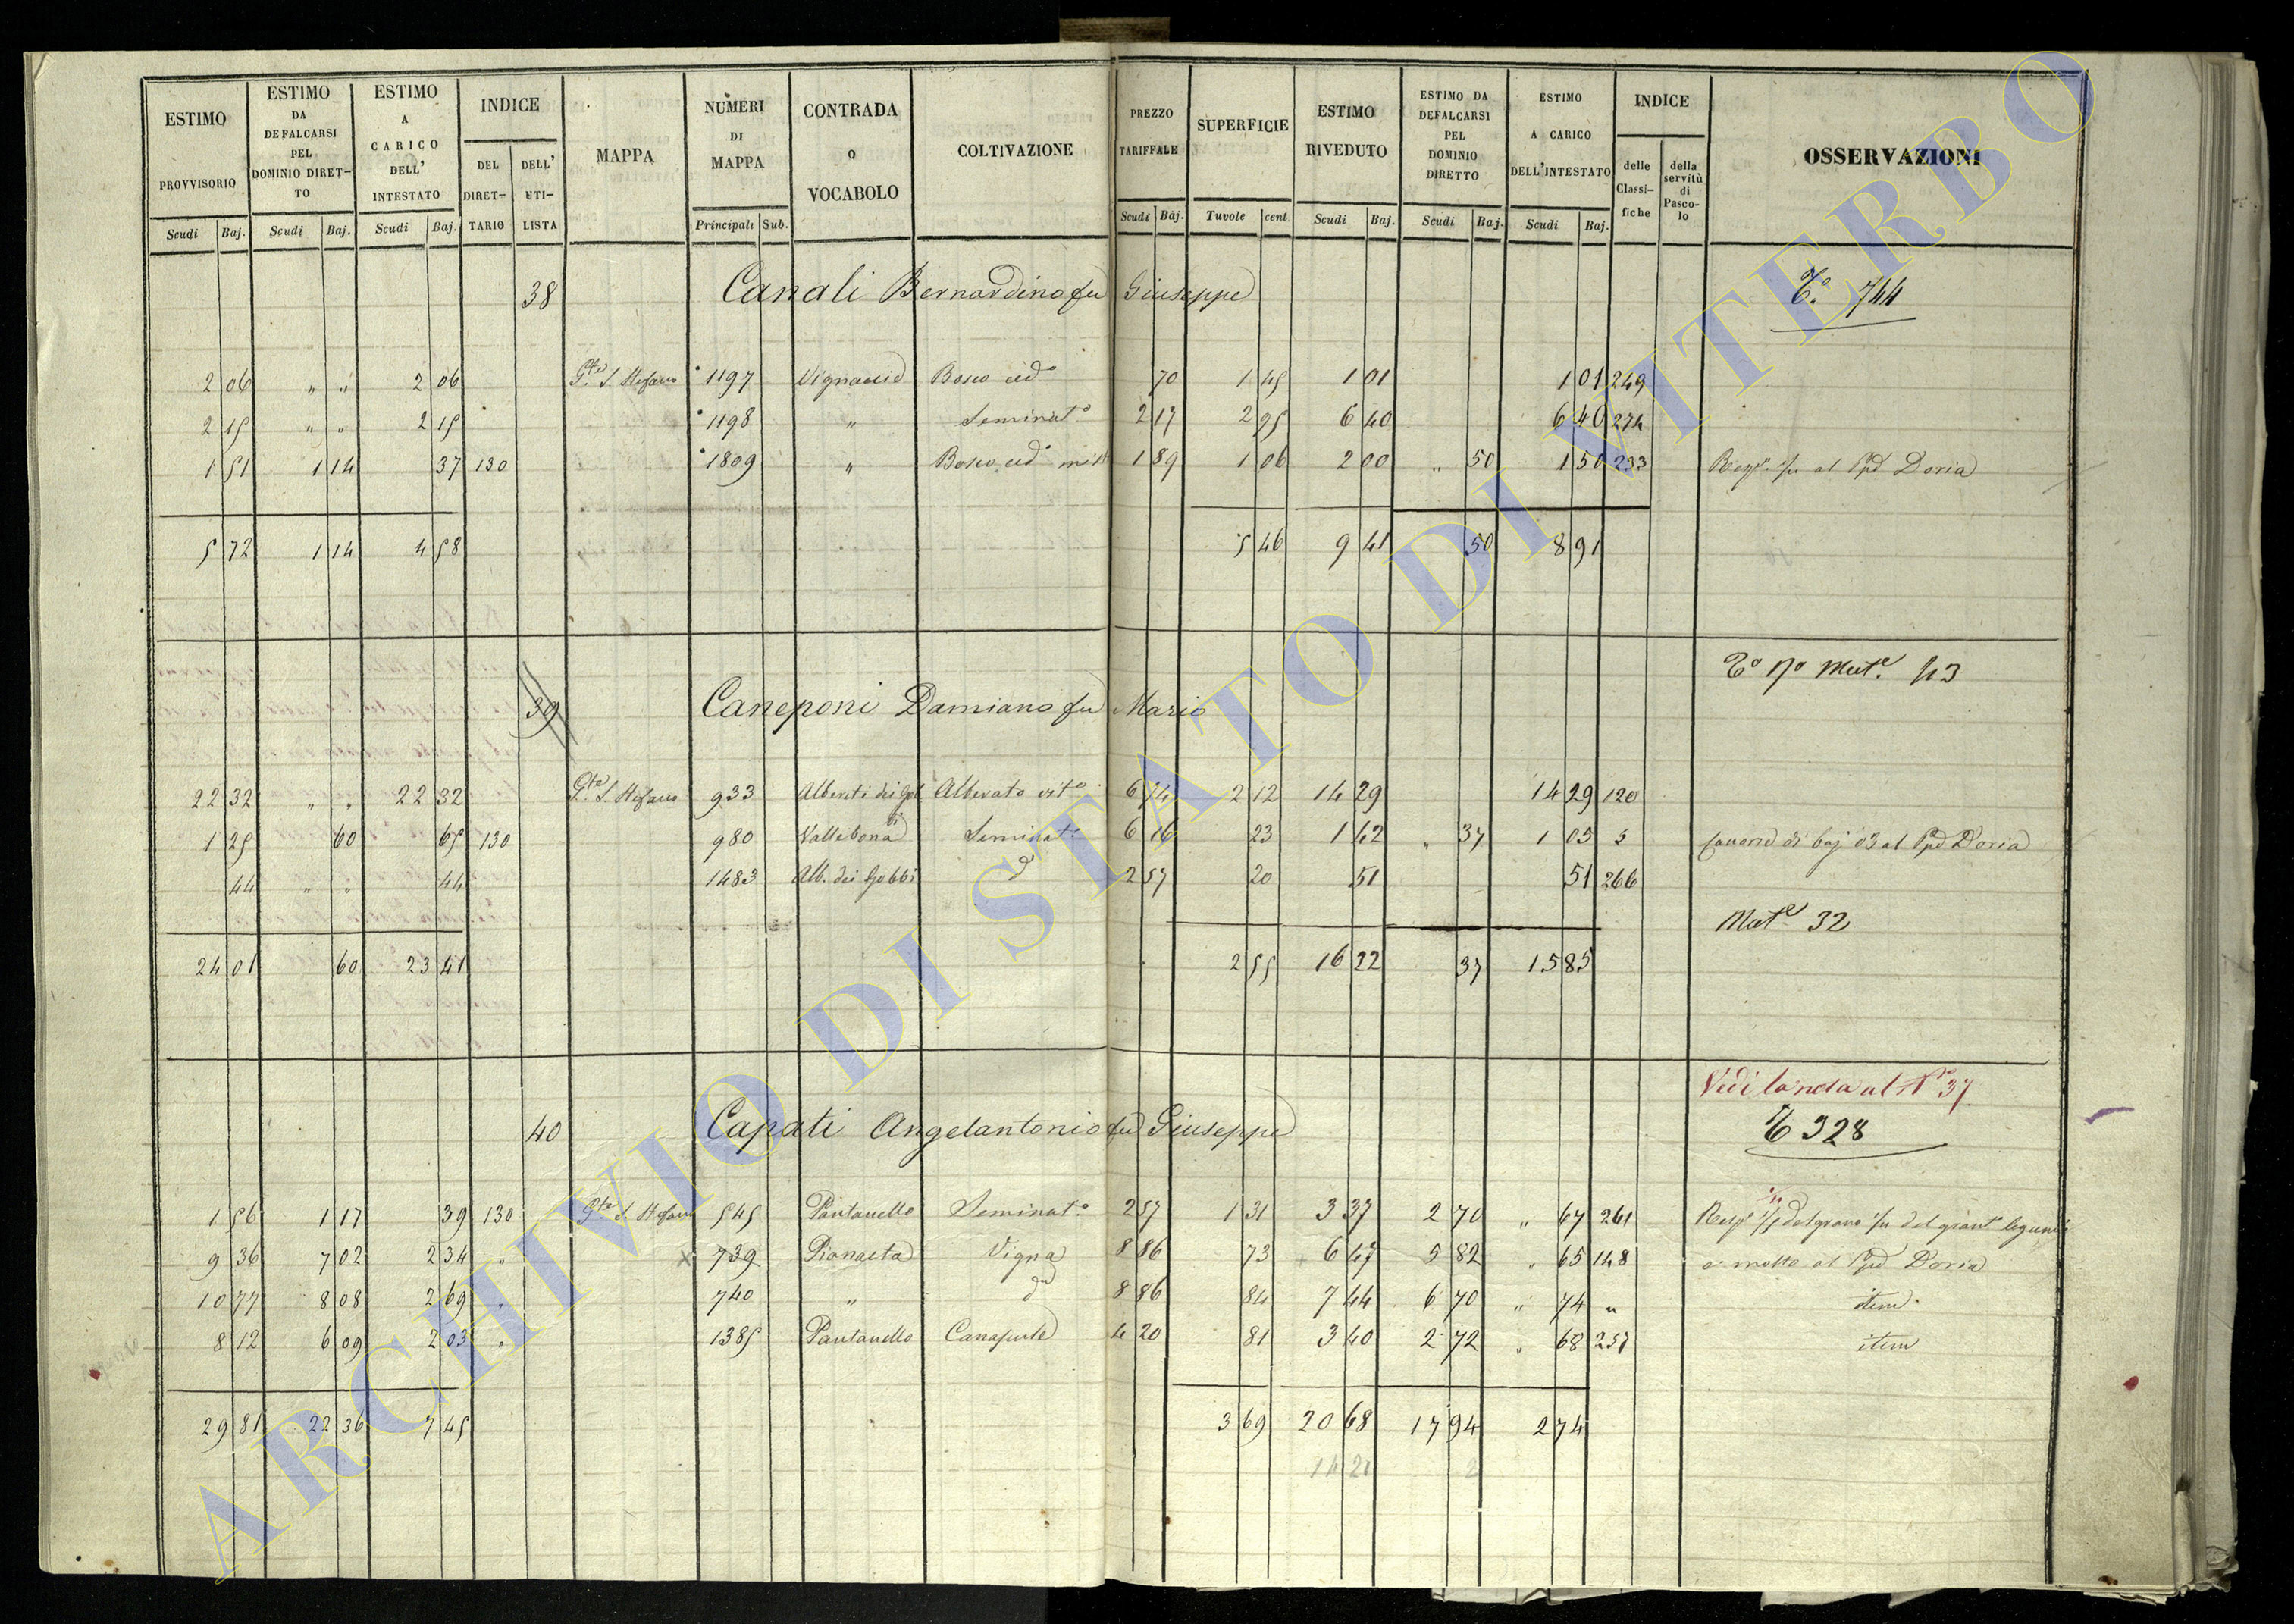 ESTIMO PROVVISORIO Scudi Baj.
ESTIMO DA DEFALCARSI PEL DOMINIO DIRET-TO Scudi Baj.
ESTIMO A CARICO DELL' INTESTATO Scudi Baj.
INDICE DEL DIRET-TARIO DELL' UTI-LISTA
MAPPA
NUMERI DI MAPPA Principali Sub.
CONTRADA O VOCABOLO
COLTIVAZIONE
PREZZO TARIFFALE Scudi Baj.
SUPERFICIE Tavole cent
ESTIMO RIVEDUTO Scudi Baj.
ESTIMO DA DEFALCARSI PEL DOMINIO DIRETTO Scudi Baj.
ESTIMO A CARICO DELL'INTESTATO Scudi Baj.
INDICE delle Classi-fiche della servitù di Pasco-lo
OSSERVAZIONI
38 Canali Bernardino fu Giuseppe Tº 744
2 06 " " 2 06 Gtte S. Stefano 1197 Bosco ced 70 1 45 1 01 1 01 249
2 15 " " 2 15 1198 " Seminatº 2 17 2 95 6 40 6 40 274
1 51 1 14 37 130 1809 " Bosco ced misto 1 89 1 06 2 00 " 50 1 50 233 al Ppe Doria
5 72 1 14 4 58 5 46 9 41 50 8 91
Tº Nº Mute 43
39 Caneponi Damiano fu Mario
22 32 " " 22 32 Gtte S. Stefano 933 Alberati dei Gob Alberato vitº 6 74 2 12 14 29 14 29 120
1 25 60 65 130 980 Vallebona Seminatº 6 16 23 1 42 " 37 1 05 5 di baj 03 al Ppe Doria
44 " " 44 1483 Alb. dei Gobbi d 2 57 20 51 51 266
Mute 32
24 01 60 23 41 2 55 16 22 37 15 85
Vedi la nota al Nº 37
40 Capati Angelantonio fu Giuseppe T 328
1 56 1 17 39 130 Gtte S. Stefano 545 Pantanello Seminatº 2 57 1 31 3 37 2 70 " 67 261 Rispe 1/5 del grano
9 36 7 02 2 34 " x 739 Pianaeta Vigna 8 86 73 6 47 5 82 " 65 148 e mosto al Ppe Doria
10 77 8 08 2 69 " 740 " d 8 86 84 7 44 6 70 " 74 " item
8 12 6 09 2 03 " 1385 Pantanello Canapule 4 20 81 3 40 2 72 " 68 257 item
29 81 22 36 7 45 3 69 20 68 17 94 2 74
ARCHIVIO DI STATO DI VITERBO